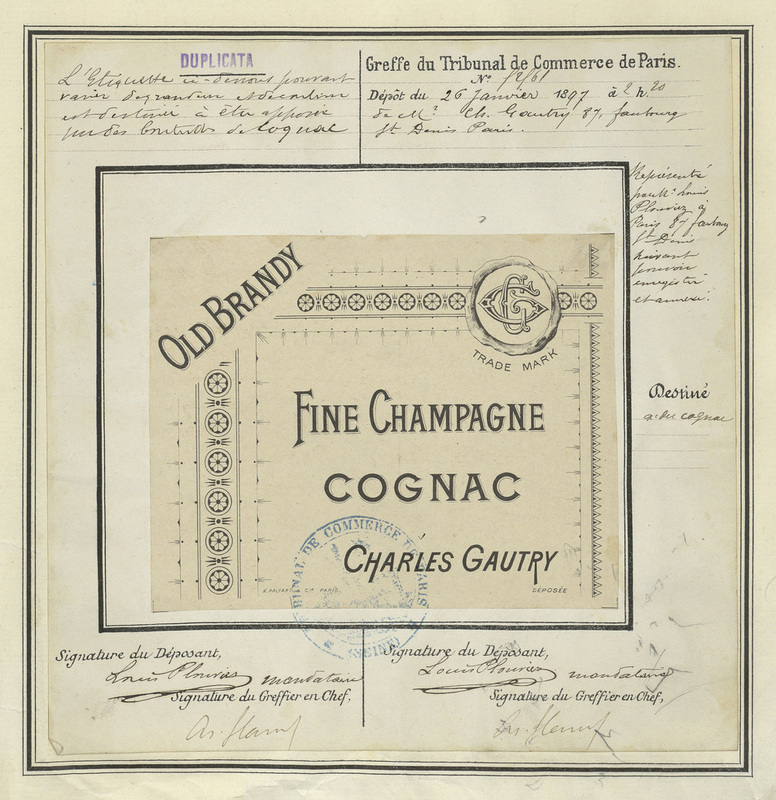 DUPLICATA
L'Etiquette ci-dessous pouvant
varier de grandeur et de couleur
est destinée à être apposée
sur des bouteilles de Cognac
Greffe du Tribunal de Commerce de Paris.
Nº
Dépôt du 26 Janvier 1897 à 2 h. 20
de Mr Ch. Gautry 87, faubourg
St Denis Paris.
Représenté
par Mr Louis
Plouviez à
Paris 87 faubourg
St Denis
suivant
pouvoir
enregistré
et annexé.
Destiné
à du cognac
OLD BRANDY
CG
TRADE MARK
FINE CHAMPAGNE
COGNAC
CHARLES GAUTRY
Cie PARIS
DÉPOSÉE
TRIBUNAL DE COMMERCE DE PARIS
(SEINE)
Signature du Déposant,
Louis Plouviez mandataire
Signature du Greffier en Chef,
Signature du Déposant,
Louis Plouviez mandataire
Signature du Greffier en Chef,